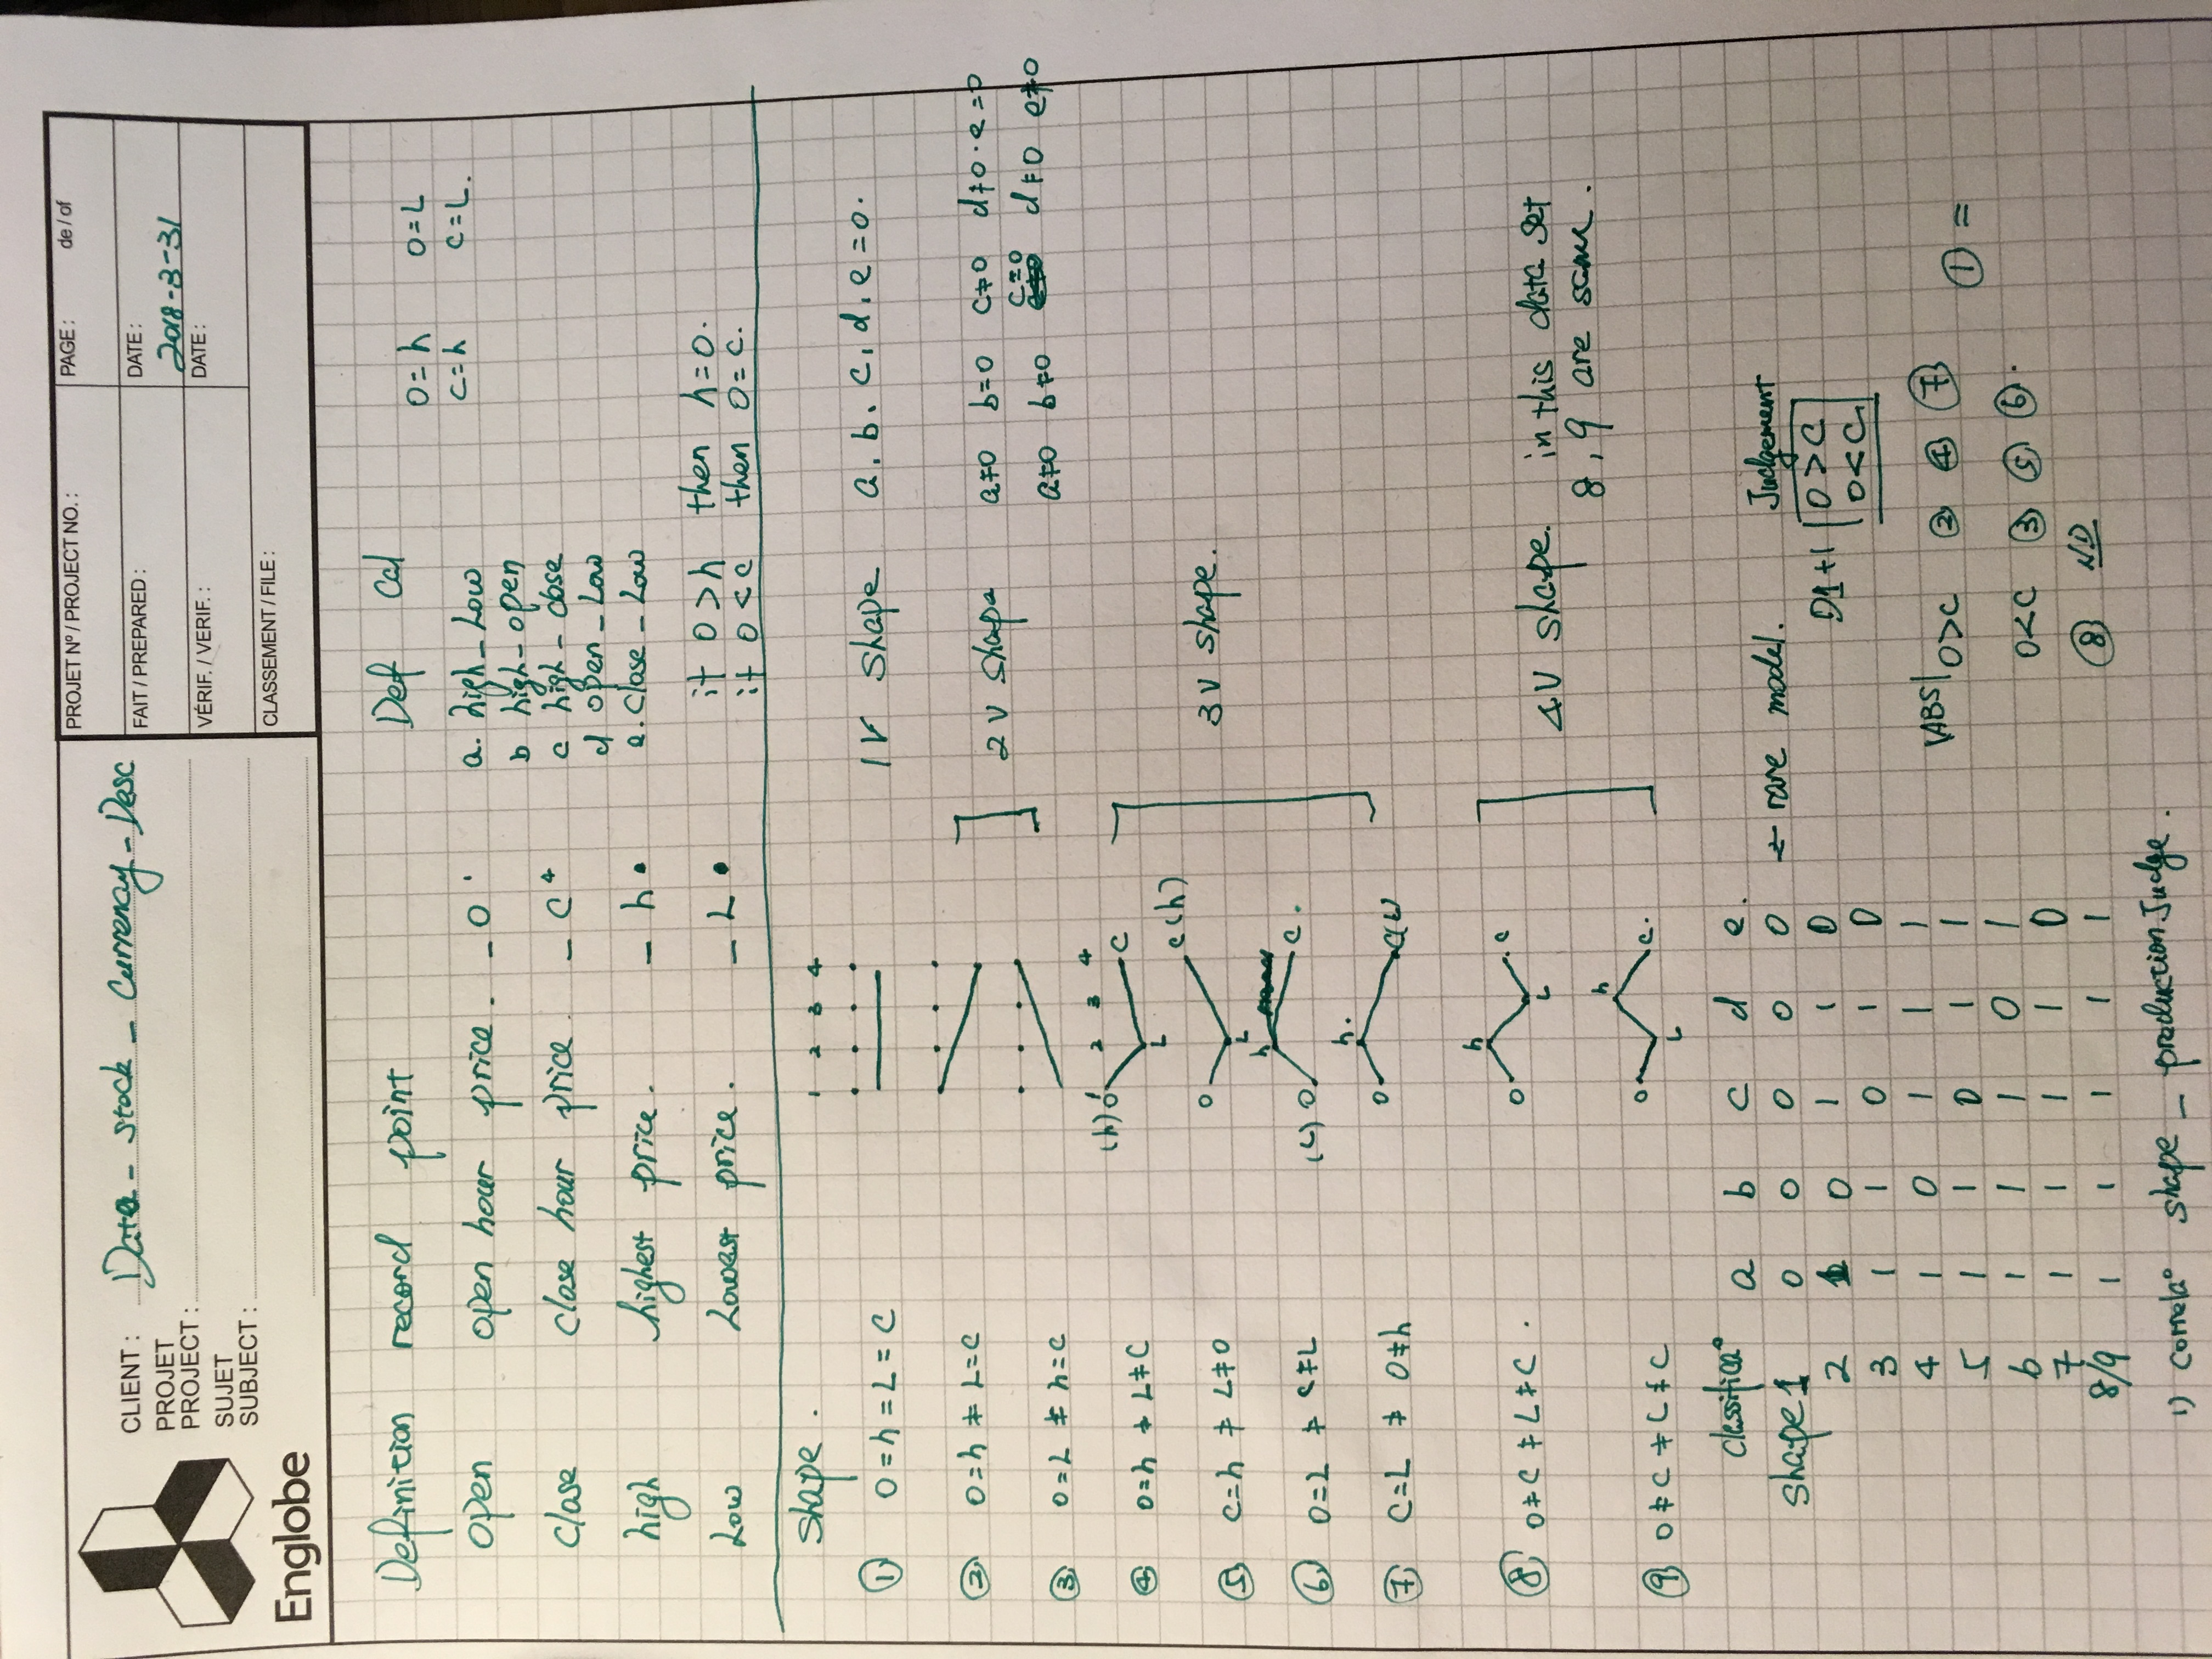 CLIENT : Data - stock - Currency - Desc
PROJET
PROJECT :
SUJET
SUBJECT :
Englobe
PROJET Nº / PROJECT NO. :
PAGE : de / of
FAIT / PREPARED :
DATE :
2018-3-31
VÉRIF. / VERIF. :
DATE :
CLASSEMENT / FILE :
Definition record point
open open hour price. - O 1
close close hour price. - C 4
high highest price. - h •
Low Lowest price. - L •
Def Cal
a. high - Low
b high - open
c high - close
d open - Low
e. close - Low
O=h O=L
C=h C=L.
if O>h then h=O.
if O<C then O=C.
shape.
1 2 3 4
① O=h=L=C
1V shape a. b. c, d. e =0.
② O=h≠L=C
2V shape a≠0 b=0 c≠0 d≠0 · e=0
③ O=L≠h=C
c=0
a≠0 b≠0 d≠0 e≠0
1 2 3 4
④ O=h≠L≠C
(h) O L C
⑤ C=h≠L≠O
O L C(h)
3V shape.
⑥ O=L≠C≠L
(L) O h C.
⑦ C=L≠O≠h
O h. C(L)
⑧ O≠C≠L≠C.
O h L C
4V shape. in this data set
8, 9 are same.
⑨ O≠C≠L≠C
O L h C.
Classifica° a b c d e.
shape 1 0 0 0 0 0 ← rare model.
2 1 0 1 1 0
3 1 1 0 1 0
4 1 0 1 1 1
5 1 1 0 1 1
6 1 1 1 0 1
7 1 1 1 1 0
8/9 1 1 1 1 1
Judgement
D1+1 O>C
O<C
|ABS| O>C ② ④ ⑦
① =
O<C ③ ⑤ ⑥.
⑧ ND
1) Correla° shape - production Judge.